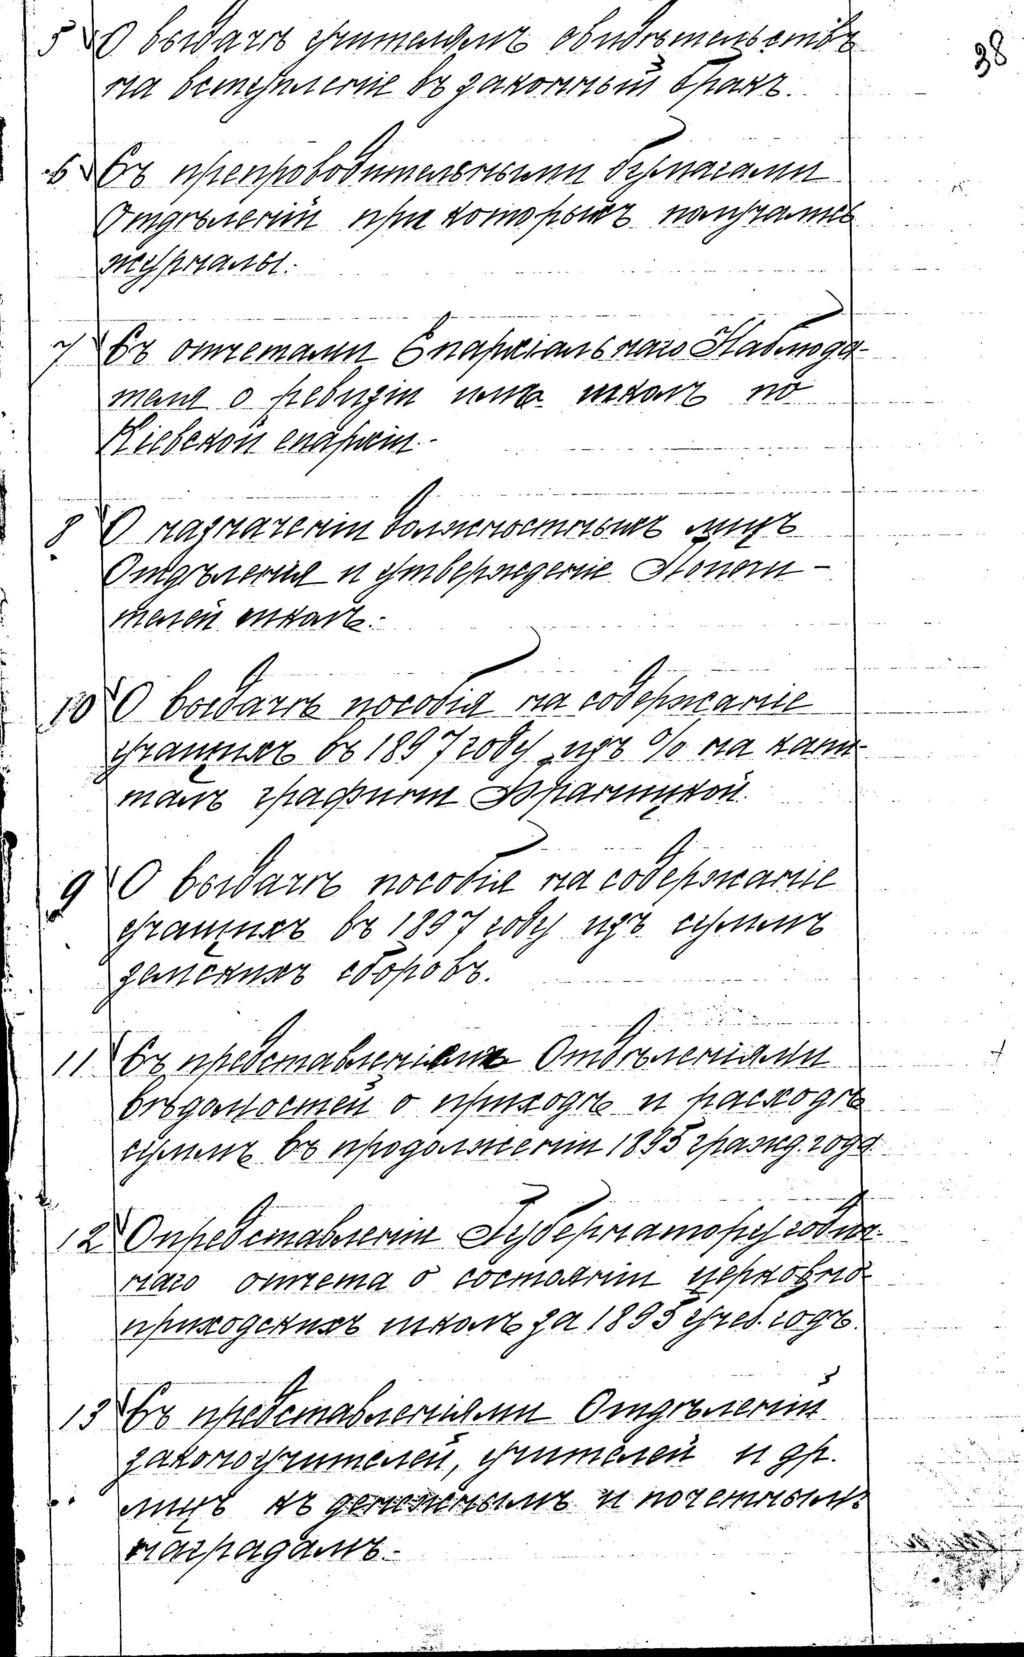 38
5 О выдачѣ учителямъ свидѣтельствъ
на вступленіе въ законный бракъ.
6 Съ препроводительными бумагами
Отдѣленій при которыхъ получались
журналы.
7 Съ отчетами Епархіальнаго Наблюда-
теля о ревизіи имъ школъ по
Кіевской епархіи.-
8 О назначеніи должностныхъ лицъ
Отдѣленія и утвержденіе Попечи-
телей школъ.-
10 О выдачѣ пособія на содержаніе
учащихъ въ 1897 году изъ % на капи-
талъ графини Браницкой.
9 О выдачѣ пособія на содержаніе
учащихъ въ 1897 году изъ суммъ
земскихъ сборовъ.
11 Съ представленіемъ Отдѣленіями
вѣдомостей о приходѣ и расходѣ
суммъ въ продолженіи 1895 гражд. года
12 О представленіи Губернатору годич-
наго отчета о состояніи церковно
приходскихъ школъ за 1895 учеб. годъ.
13 Съ представленіями Отдѣленій
законоучителей, учителей и др.
лицъ къ денежнымъ и почетнымъ
наградамъ.-